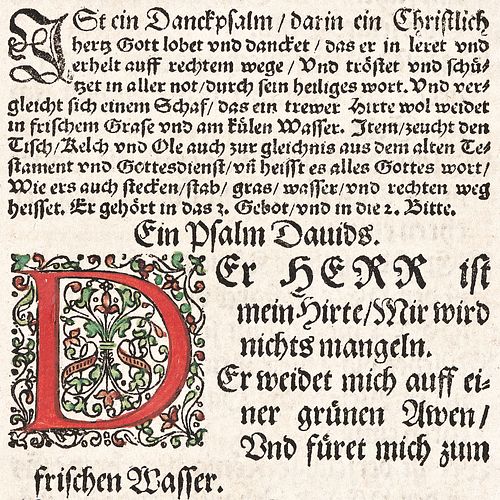 ISt ein Danckpsalm / darin ein Christlich
hertz Gott lobet vnd dancket / das er in leret vnd
erhelt auff rechtem wege / Vnd tröstet vnd schü-
tzet in aller not / durch sein heiliges wort. Vnd ver-
gleicht sich einem Schaf / das ein trewer Hirte wol weidet
in frischem Grase vnd am külen Wasser. Item / zeucht den
Tisch / Kelch vnd Ole auch zur gleichnis aus dem alten Te-
stament vnd Gottesdienst / vñ heisst es alles Gottes wort /
Wie ers auch stecken / stab / gras / wasser / vnd rechten weg
heisset. Er gehört in das 3. Gebot / vnd in die 2. Bitte.
Ein Psalm Dauids.
DEr HERR ist
mein Hirte / Mir wird
nichts mangeln.
Er weidet mich auff ei-
ner grünen Awen /
Vnd füret mich zum
frischen Wasser.